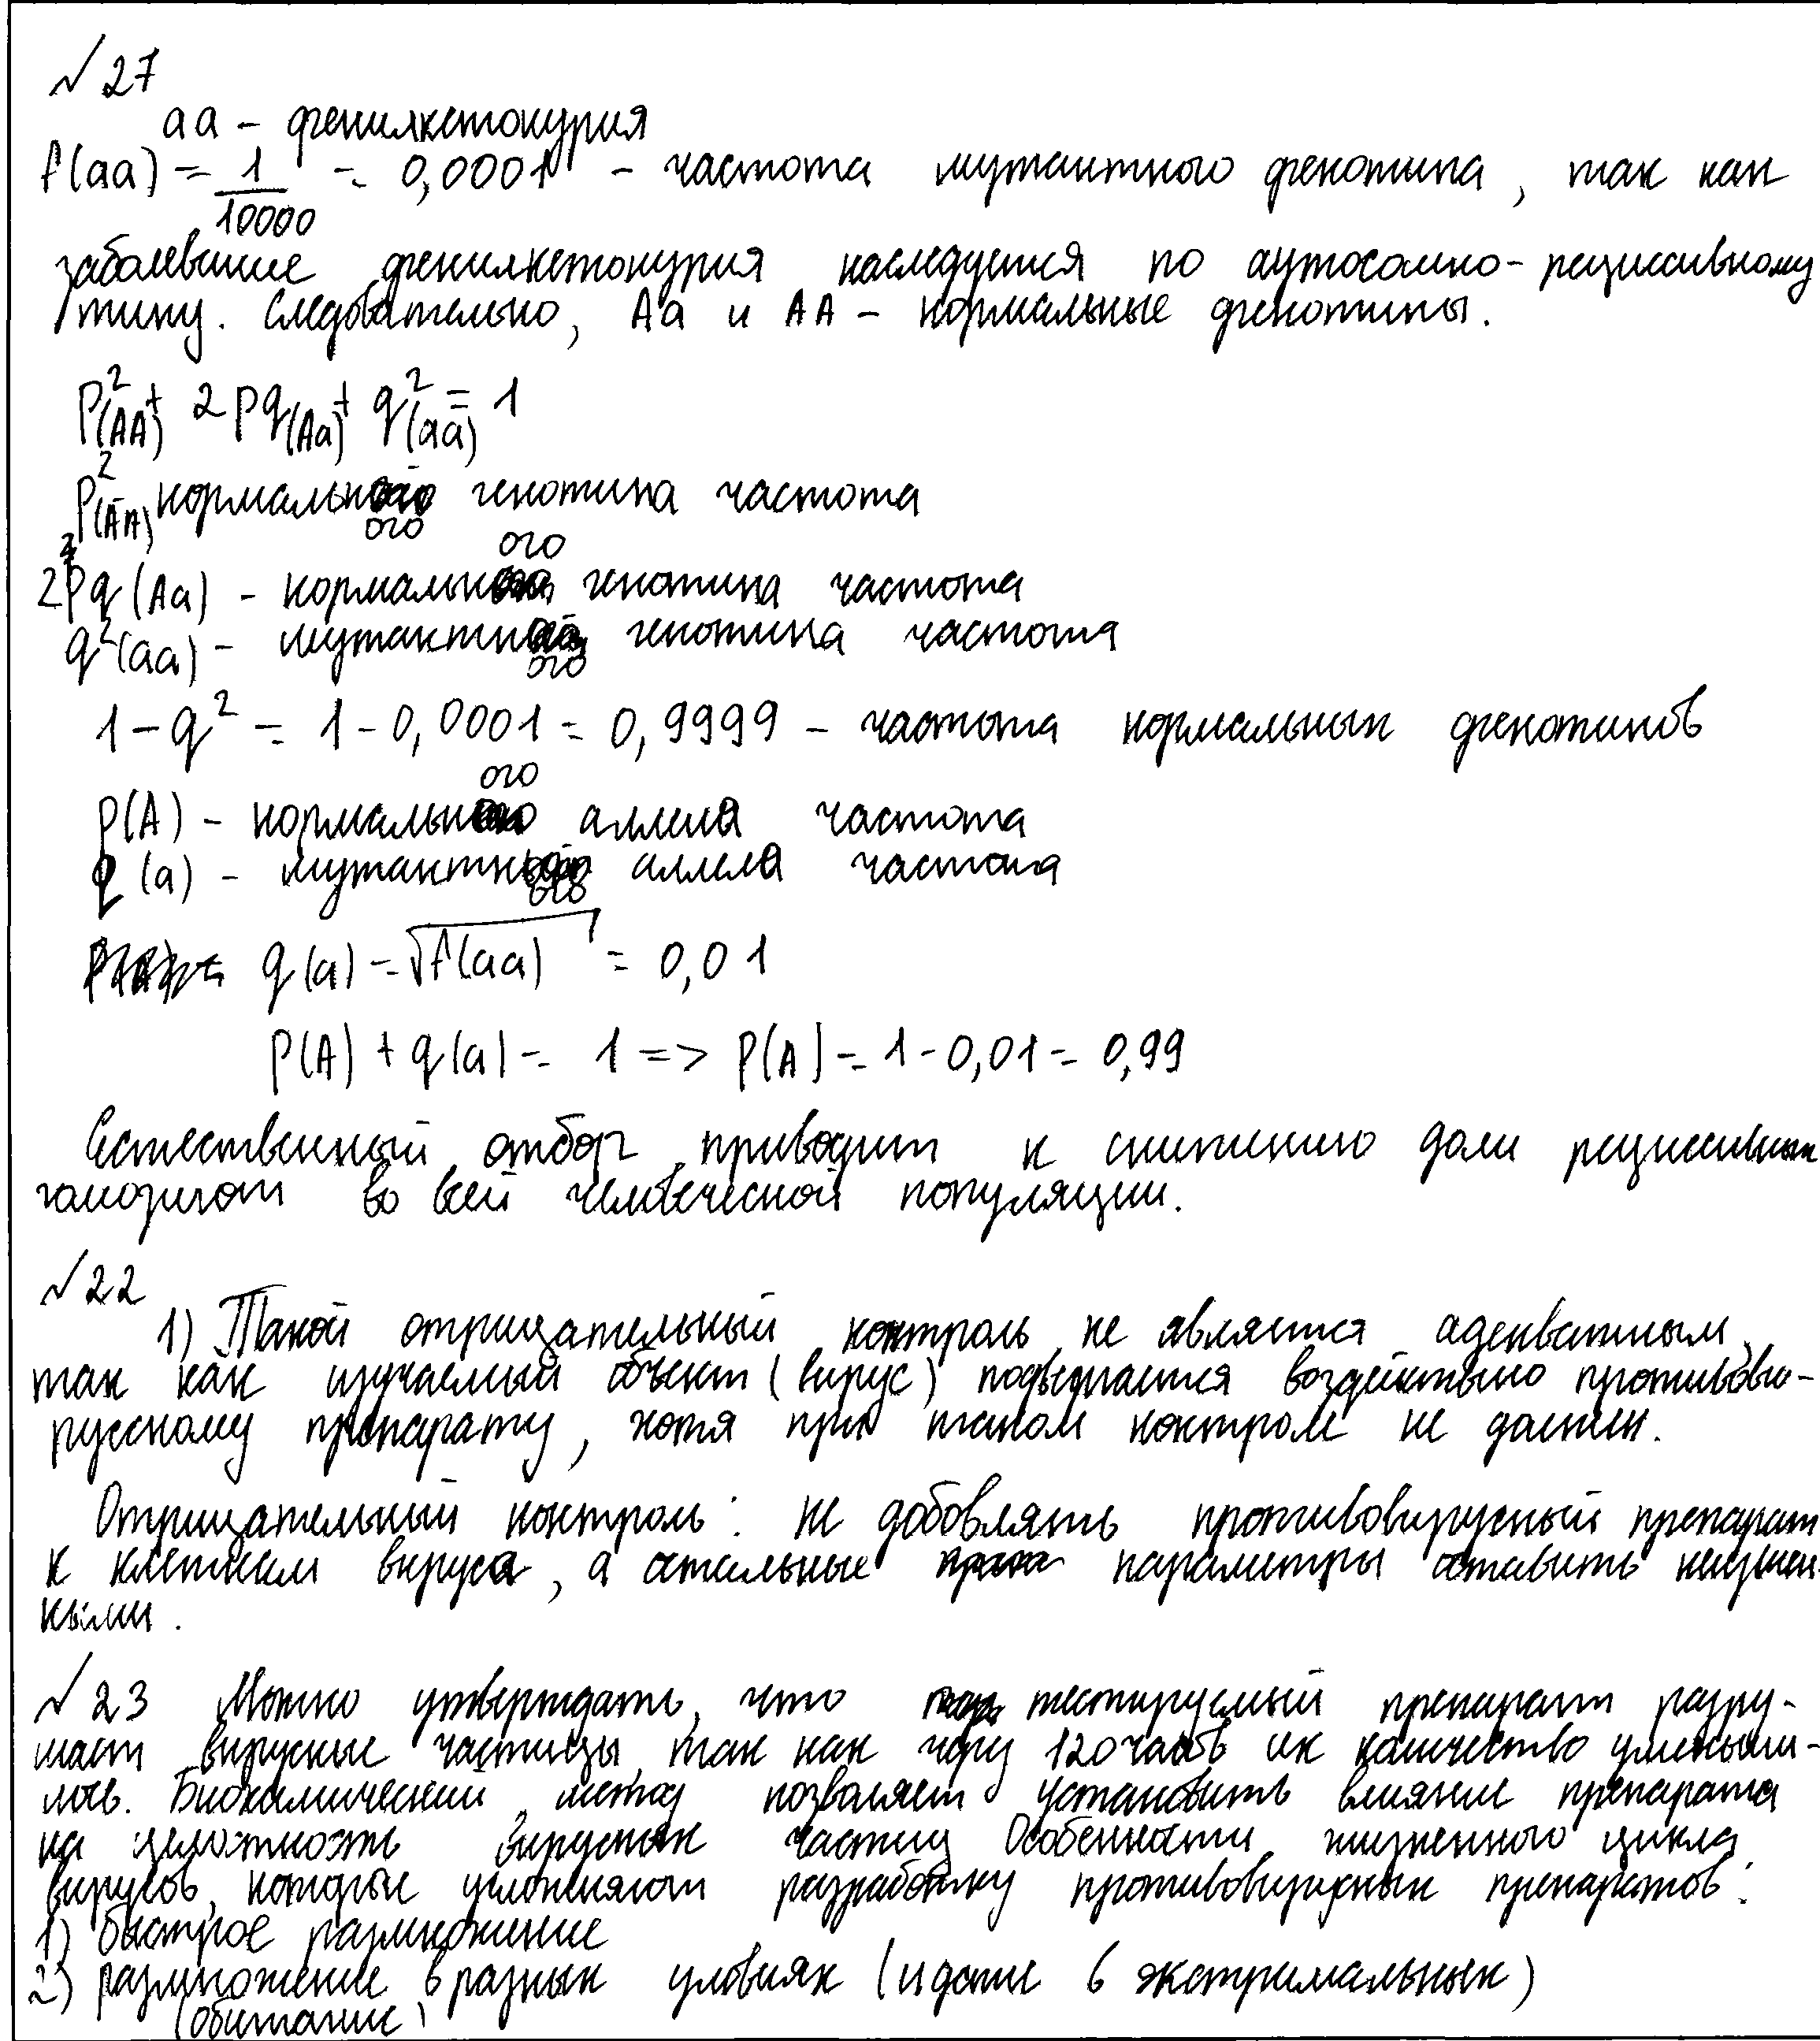 √27
aa – фенилкетонурия
f(aa) = 1/10000 = 0,0001 – частота мутантного фенотипа, так как
заболевание фенилкетонурия наследуется по аутосомно-рецессивному
типу. Следовательно, Aa и AA – нормальные фенотипы.
p²(AA) + 2pq(Aa) + q²(aa) = 1
p²(AA) – нормального генотипа частота
2pq (Aa) – нормального генотипа частота
q²(aa) – мутантного генотипа частота
1 – q² = 1 – 0,0001 = 0,9999 – частота нормальных фенотипов
p(A) – нормального аллеля частота
q(a) – мутантного аллеля частота
q(a) = √f(aa) = 0,01
p(A) + q(a) = 1 => p(A) = 1 – 0,01 = 0,99
Естественный отбор приводит к снижению доли рецессивных
гомозигот во всей человеческой популяции.
√22
1) Такой отрицательный контроль не является адекватным,
так как изучаемый объект (вирус) подвергается воздействию противови-
русному препарату, хотя при таком контроле не должен.
Отрицательный контроль: не добовлять противовирусный препарат
к клеткам вируса, а остальные параметры оставить неизмен-
ными.
√23 Можно утверждать, что тестируемый препарат разру-
шает вирусные частицы, так как через 120 часов их количество уменьши-
лось. Биохимический метод позволяет установить влияние препарата
на целостность вирусных частиц Особенности жизненного цикла
вирусов, которые усложняют разработку противовирусных препаратов:
1) быстрое размножение
2) размножение в разных условиях (и даже в экстримальных)
(обитание)